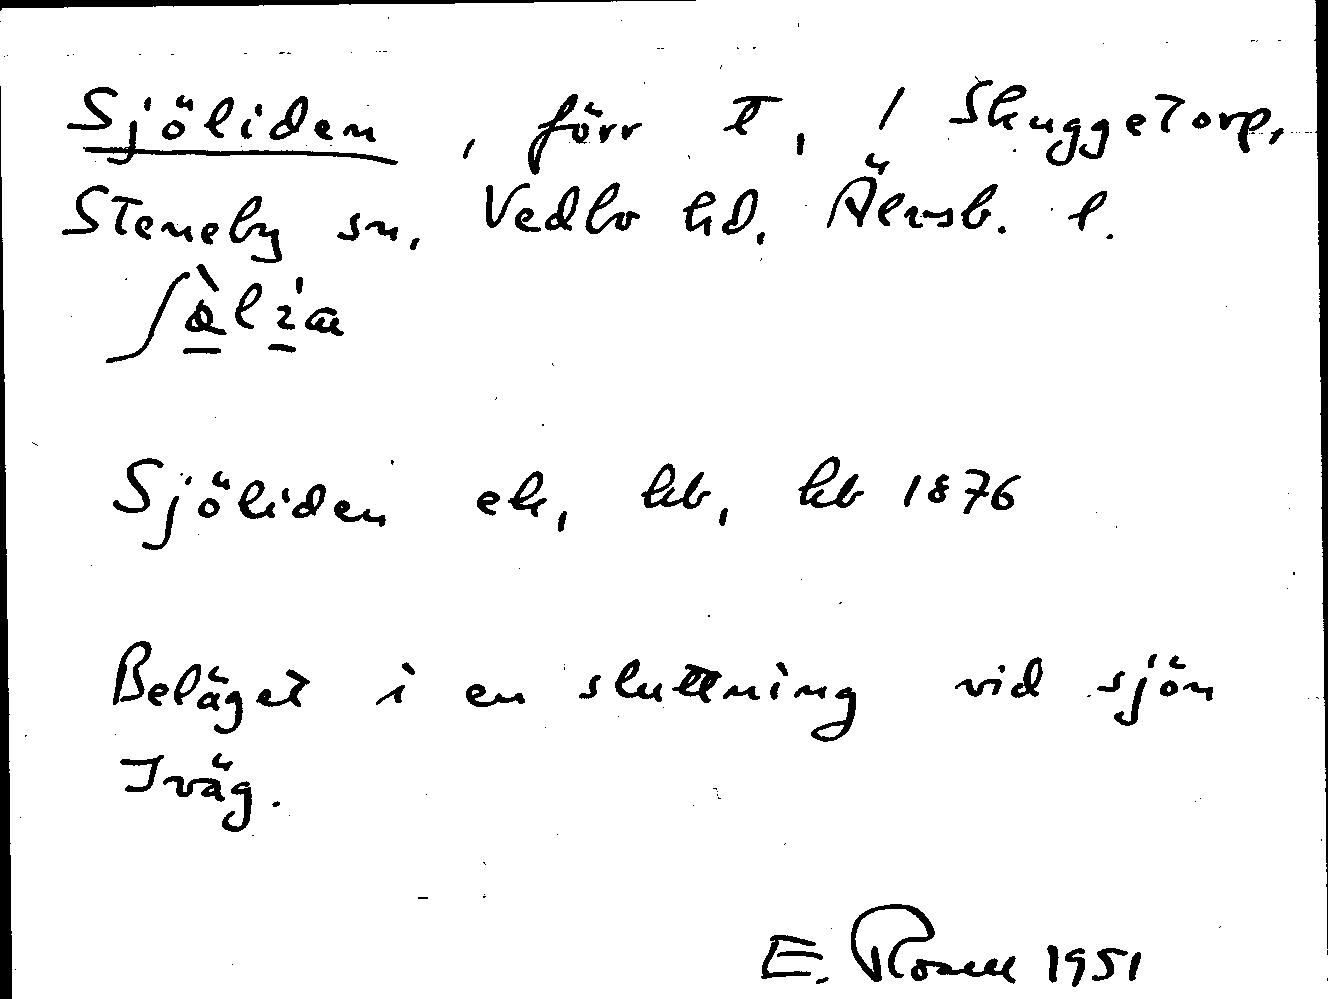 Sjöliden, förr t, / Skuggetorp,
Steneby sn, Vedbo hd. Älvsb. l.
Sjöliden ek, kb, kb 1876
Beläget i en sluttning vid sjön
Iväg.
E. Rosell 1951